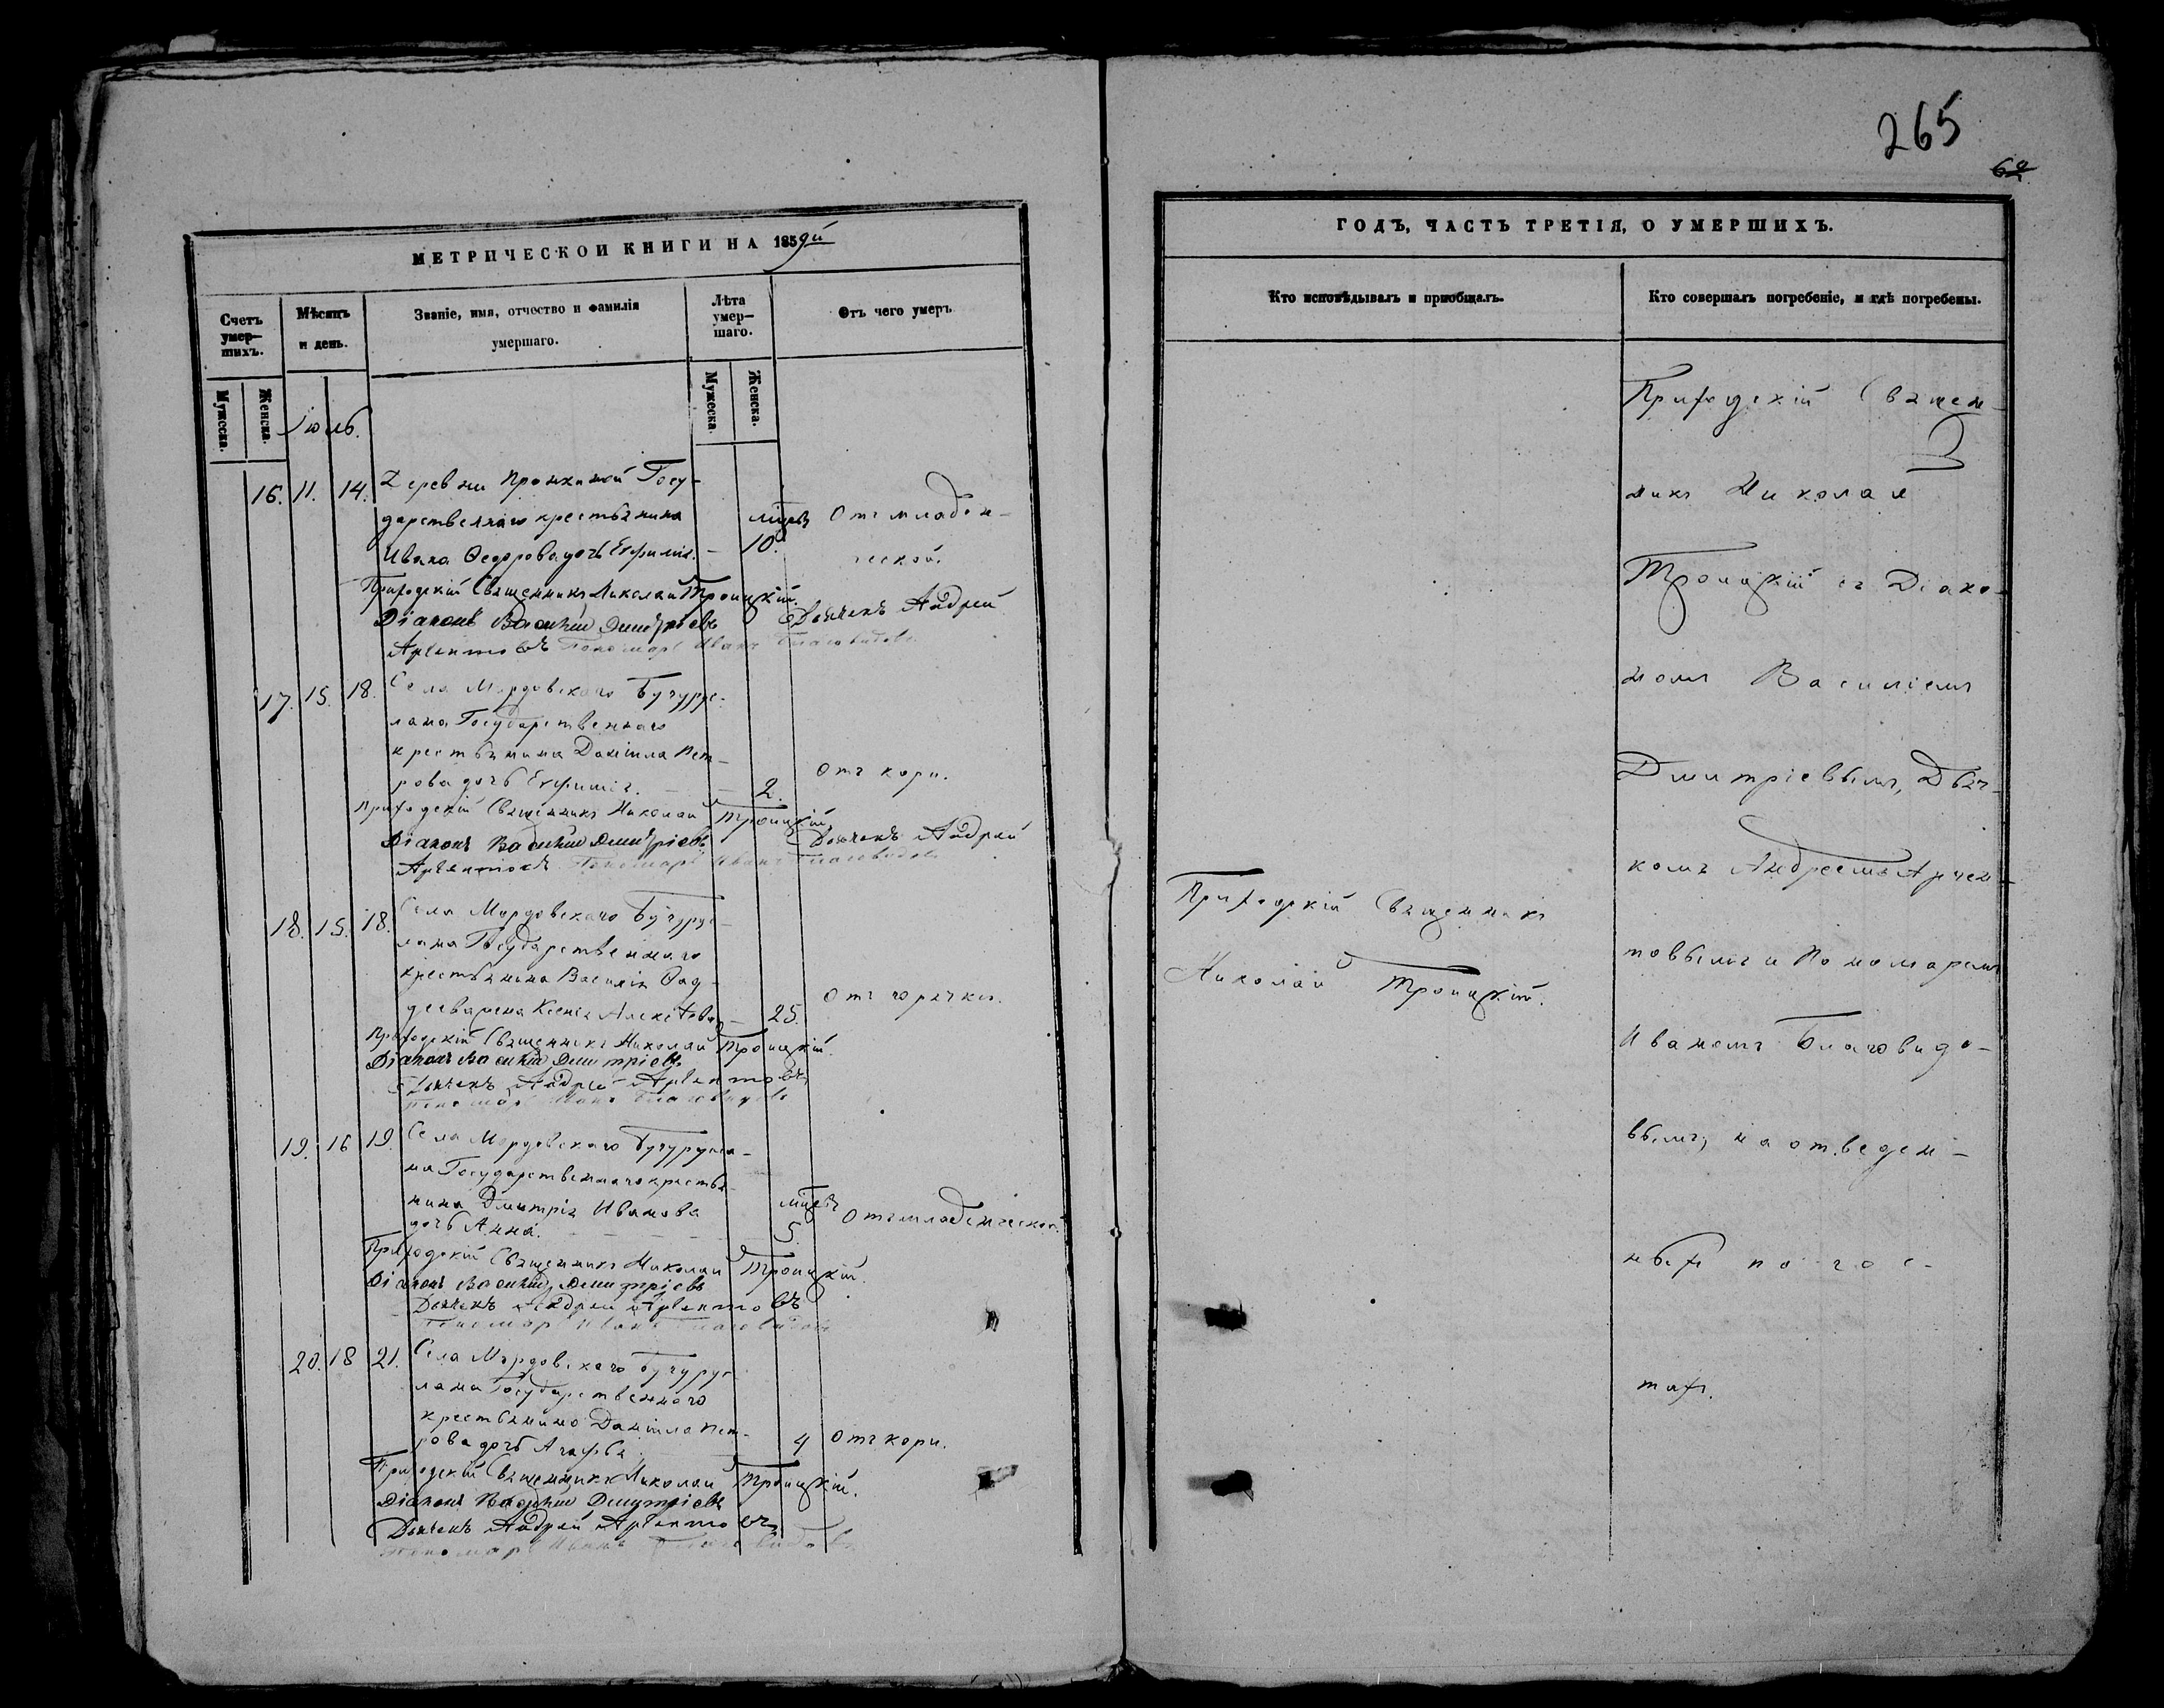 МЕТРИЧЕСКОЙ КНИГИ НА 1859й
Счетъ умер-шихъ.
Мѣсяцъ и день.
Званіе, имя, отчество и фамилія умершаго.
Лѣта умер-шаго.
Отъ чего умеръ
Мужеска.
Женска.
Мужеска.
Женска.
Іюль.
16. 11. 14. Деревни Пронкиной Госу-
дарственнаго крестьянина мцовъ Отъ младен-
Ивана Ѳеодорова дочь Евфимія. - 10. ческой.
Приходскій Священникъ Николай Троицкій.
Діаконъ Василій Дмитріевъ Дьячекъ Андрей
Арҍентовъ Пономарь Иванъ Благовидовъ
17. 15. 18. Села Мордовскаго Бугурус-
лана Государственнаго
крестьянина Даніила Пет-
рова дочь Евфимія. - - 2. Отъ кори.
Приходскій Священникъ Николай Троицкій
Діаконъ Василій Дмитріевъ Дьячекъ Андрей
Пономарь Иванъ Благовидовъ
18. 15. 18. Села Мордовскаго Бугурус-
лана Государственнаго
крестьянина Василія Ѳад-
деева жена Ксенія Алексѣева - 25. Отъ горячки.
Приходскій Священникъ Николай Троицкій.
Діаконъ Василій Дмитріевъ
Дьячекъ Андрей
Пономарь Иванъ Благовидовъ
19. 16 19. Села Мордовскаго Бугурусла-
на Государственнаго крестья-
нина Дмитрія Иванова мцовъ
дочь Анна. - - - - 5. Отъ младенческой.
Приходскій Священникъ Николай Троицкій.
Діаконъ Василій Дмитріевъ
Дьячекъ Андрей
Пономарь Иванъ Благовидовъ
20. 18 21. Села Мордовскаго Бугурус-
лана Государственнаго
крестьянина Даніила Пет-
рова дочь Агафья 4 Отъ кори.
Приходскій Священникъ Николай Троицкій.
Діаконъ Василій Дмитріевъ
Дьячекъ Андрей
Пономарь Иванъ Благовидовъ
265
ГОДЪ, ЧАСТЬ ТРЕТІЯ, О УМЕРШИХЪ.
Кто исповѣдывалъ и пріобщалъ.
Кто совершалъ погребеніе, и гдѣ погребены.
Приходскій Священникъ
Николай Троицкій.
Приходскій Священ-
никъ Николай
Троицкій съ Діако-
номъ Василіемъ
Дмитріевымъ, Дьяч-
комъ Андреемъ Арген-
товымъ и Пономаремъ
Иваномъ Благовидо-
вымъ, на отведен-
ныхъ погос-
тахъ.